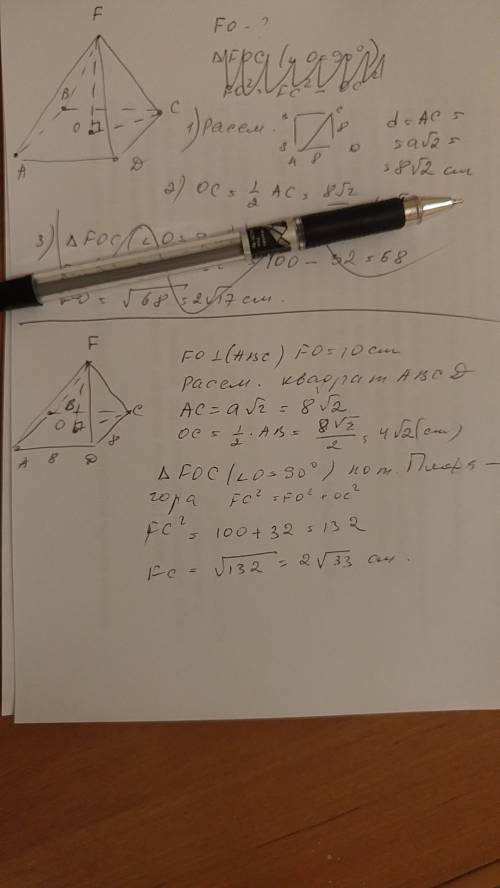 F
FO - ?
B
C
O
A
D
1) Рассм.
C
8
A 8 D
d = AC =
= a√2 =
= 8√2 см
2) OC = 1/2 AC = 8√2
3) ΔFOC (∠O =
= 100 - 32 = 68
FO = √68 = 2√17 см.
F
B
C
O
A 8 D 8
FO ⊥ (ABC) FO = 10 см
Рассм. квадрат ABCD
AC = a√2 = 8√2
OC = 1/2 · AB = 8√2/2 = 4√2 (см)
ΔFOC (∠O = 90°) по т. Пифа-
гора FC² = FO² + OC²
FC² = 100 + 32 = 132
FC = √132 = 2√33 см.